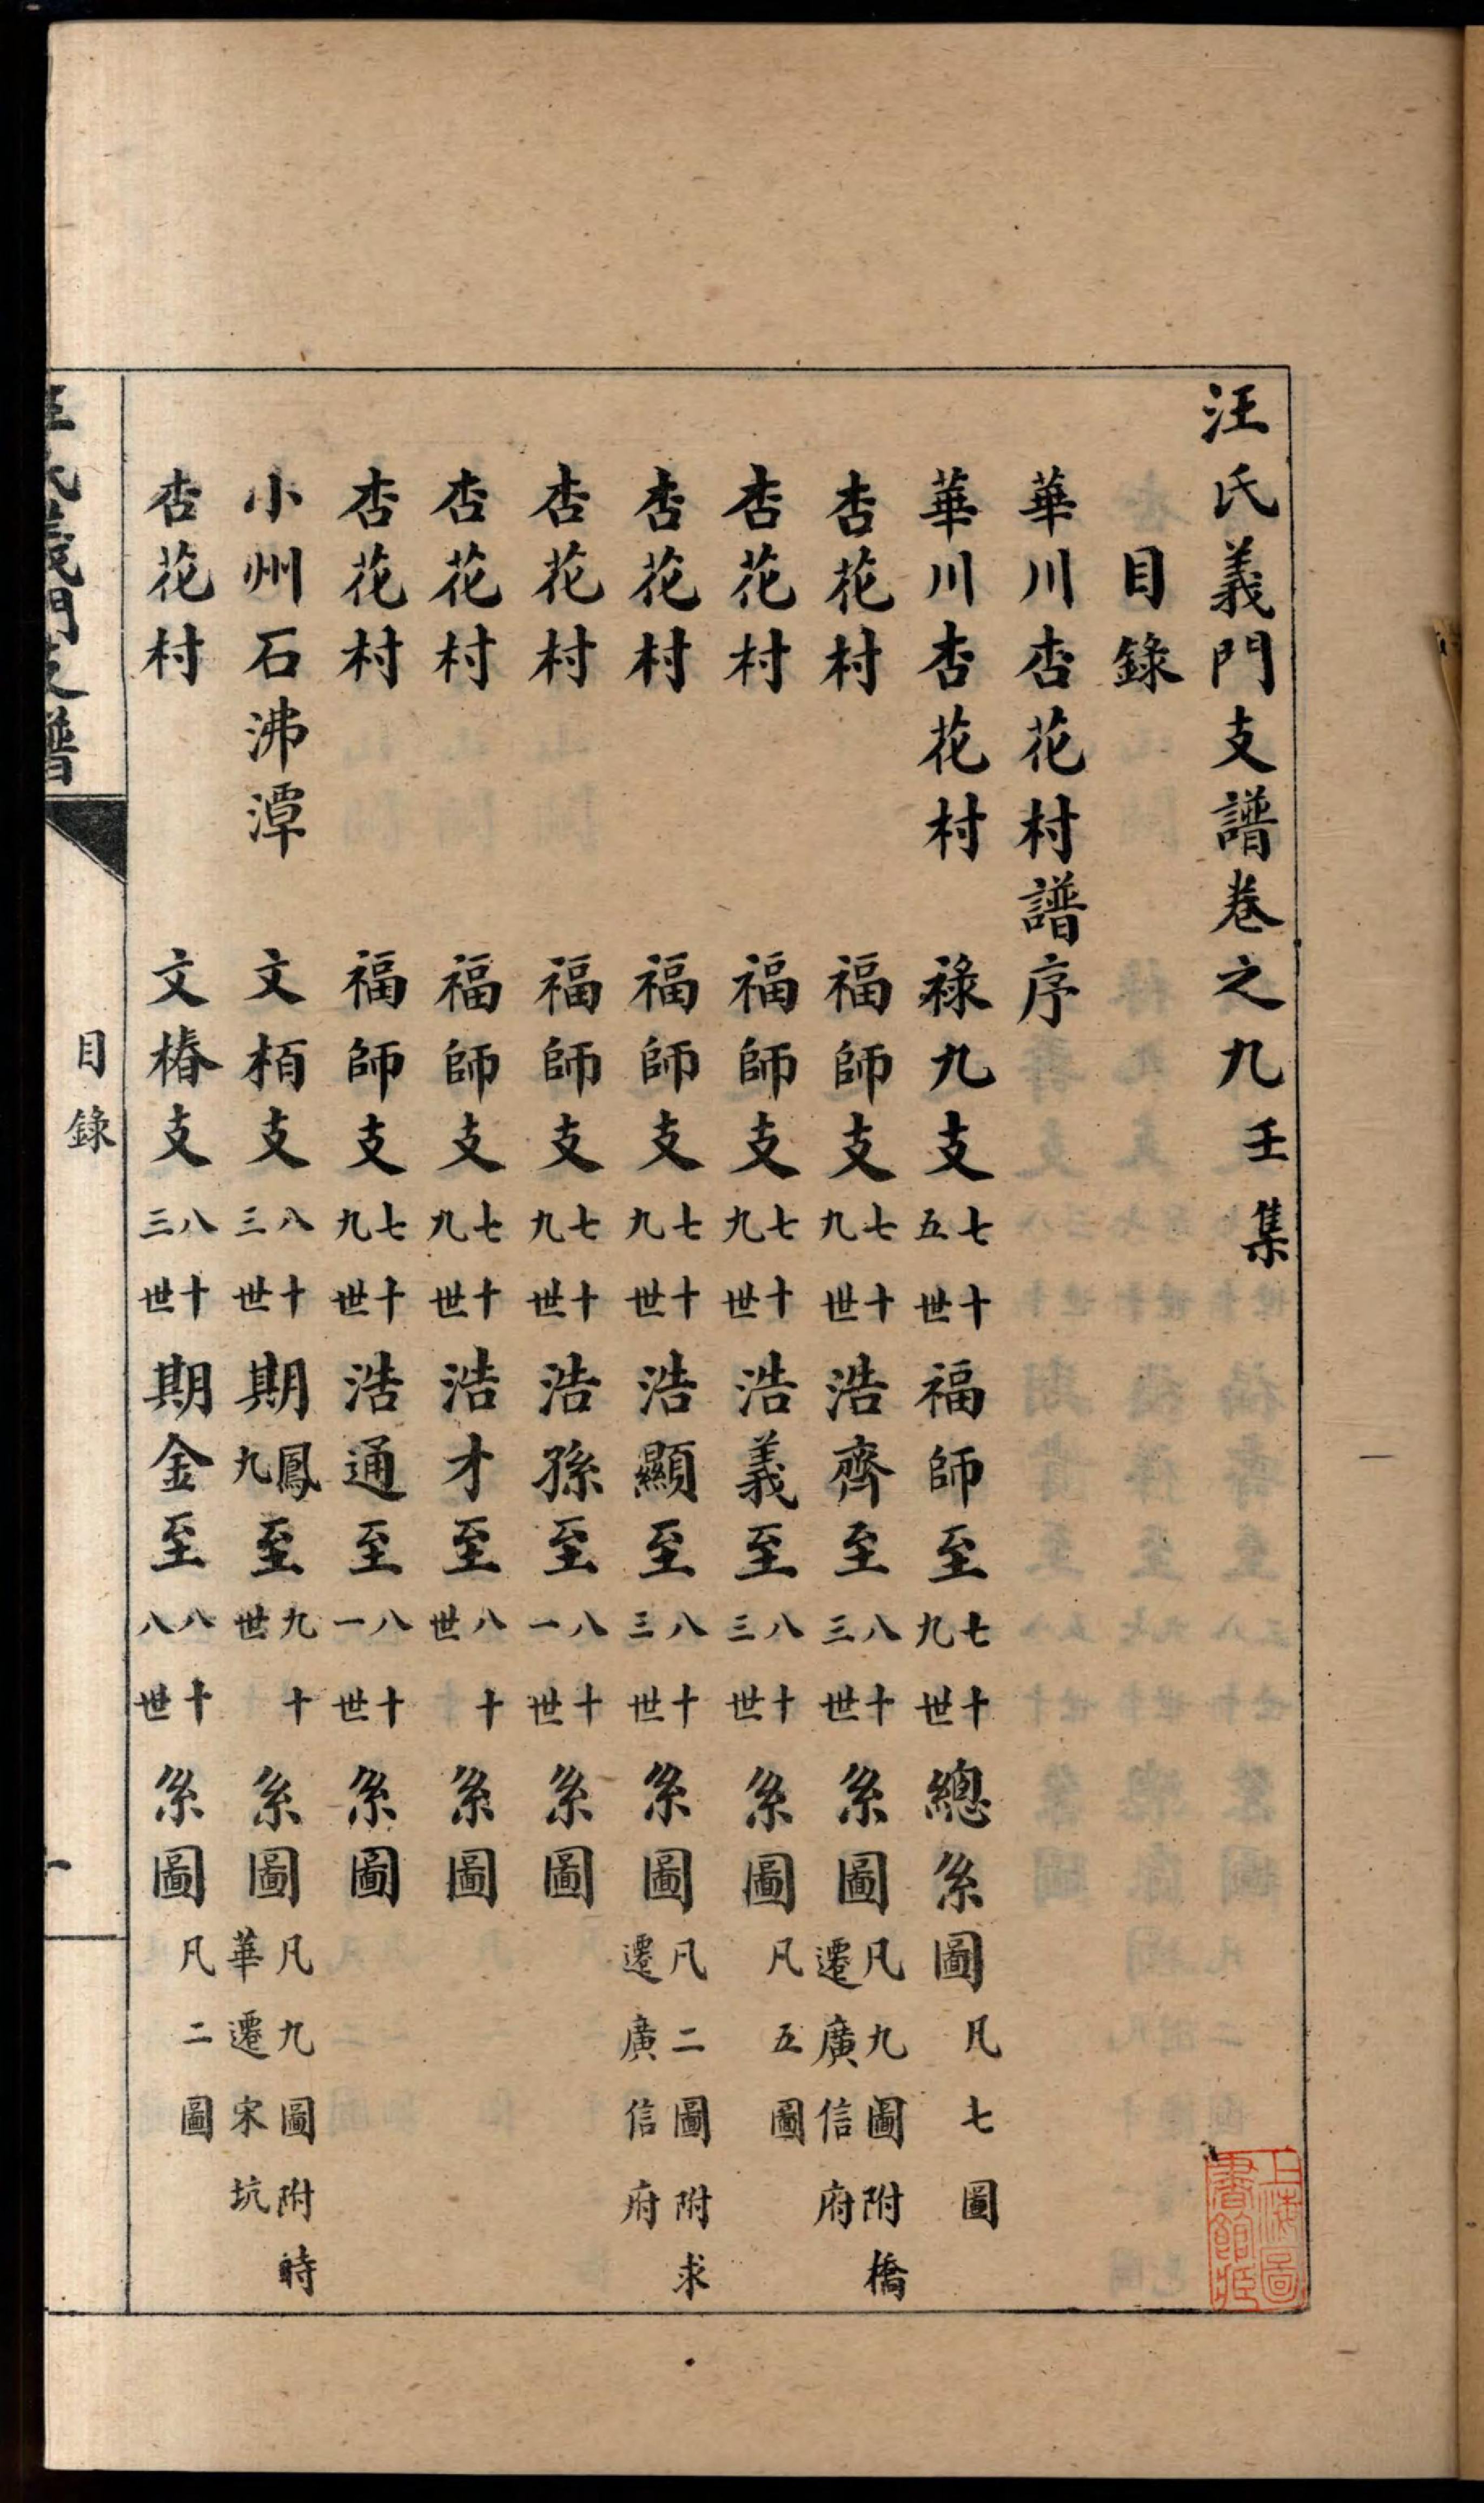 汪氏義門支譜卷之九壬集
目錄
華川杏花村譜序
華川杏花村 祿九支七十五世福師至七十九世總系圖凡七圖
杏花村 福師支七十九世浩齊至八十三世系圖凡九圖附橋遷廣信府
杏花村 福師支七十九世浩義至八十三世系圖凡五圖
杏花村 福師支七十九世浩顯至八十三世系圖凡二圖附求遷廣信府
杏花村 福師支七十九世浩孫至八十一世系圖
杏花村 福師支七十九世浩才至八十世系圖
杏花村 福師支七十九世浩通至八十一世系圖
小州石沸潭 文栢支八十三世期鳳九至九十世系圖凡九圖附時華遷宋坑
杏花村 文椿支八十三世期金至八十八世系圖凡二圖
汪氏義門支譜 目錄 一
上海圖書館藏